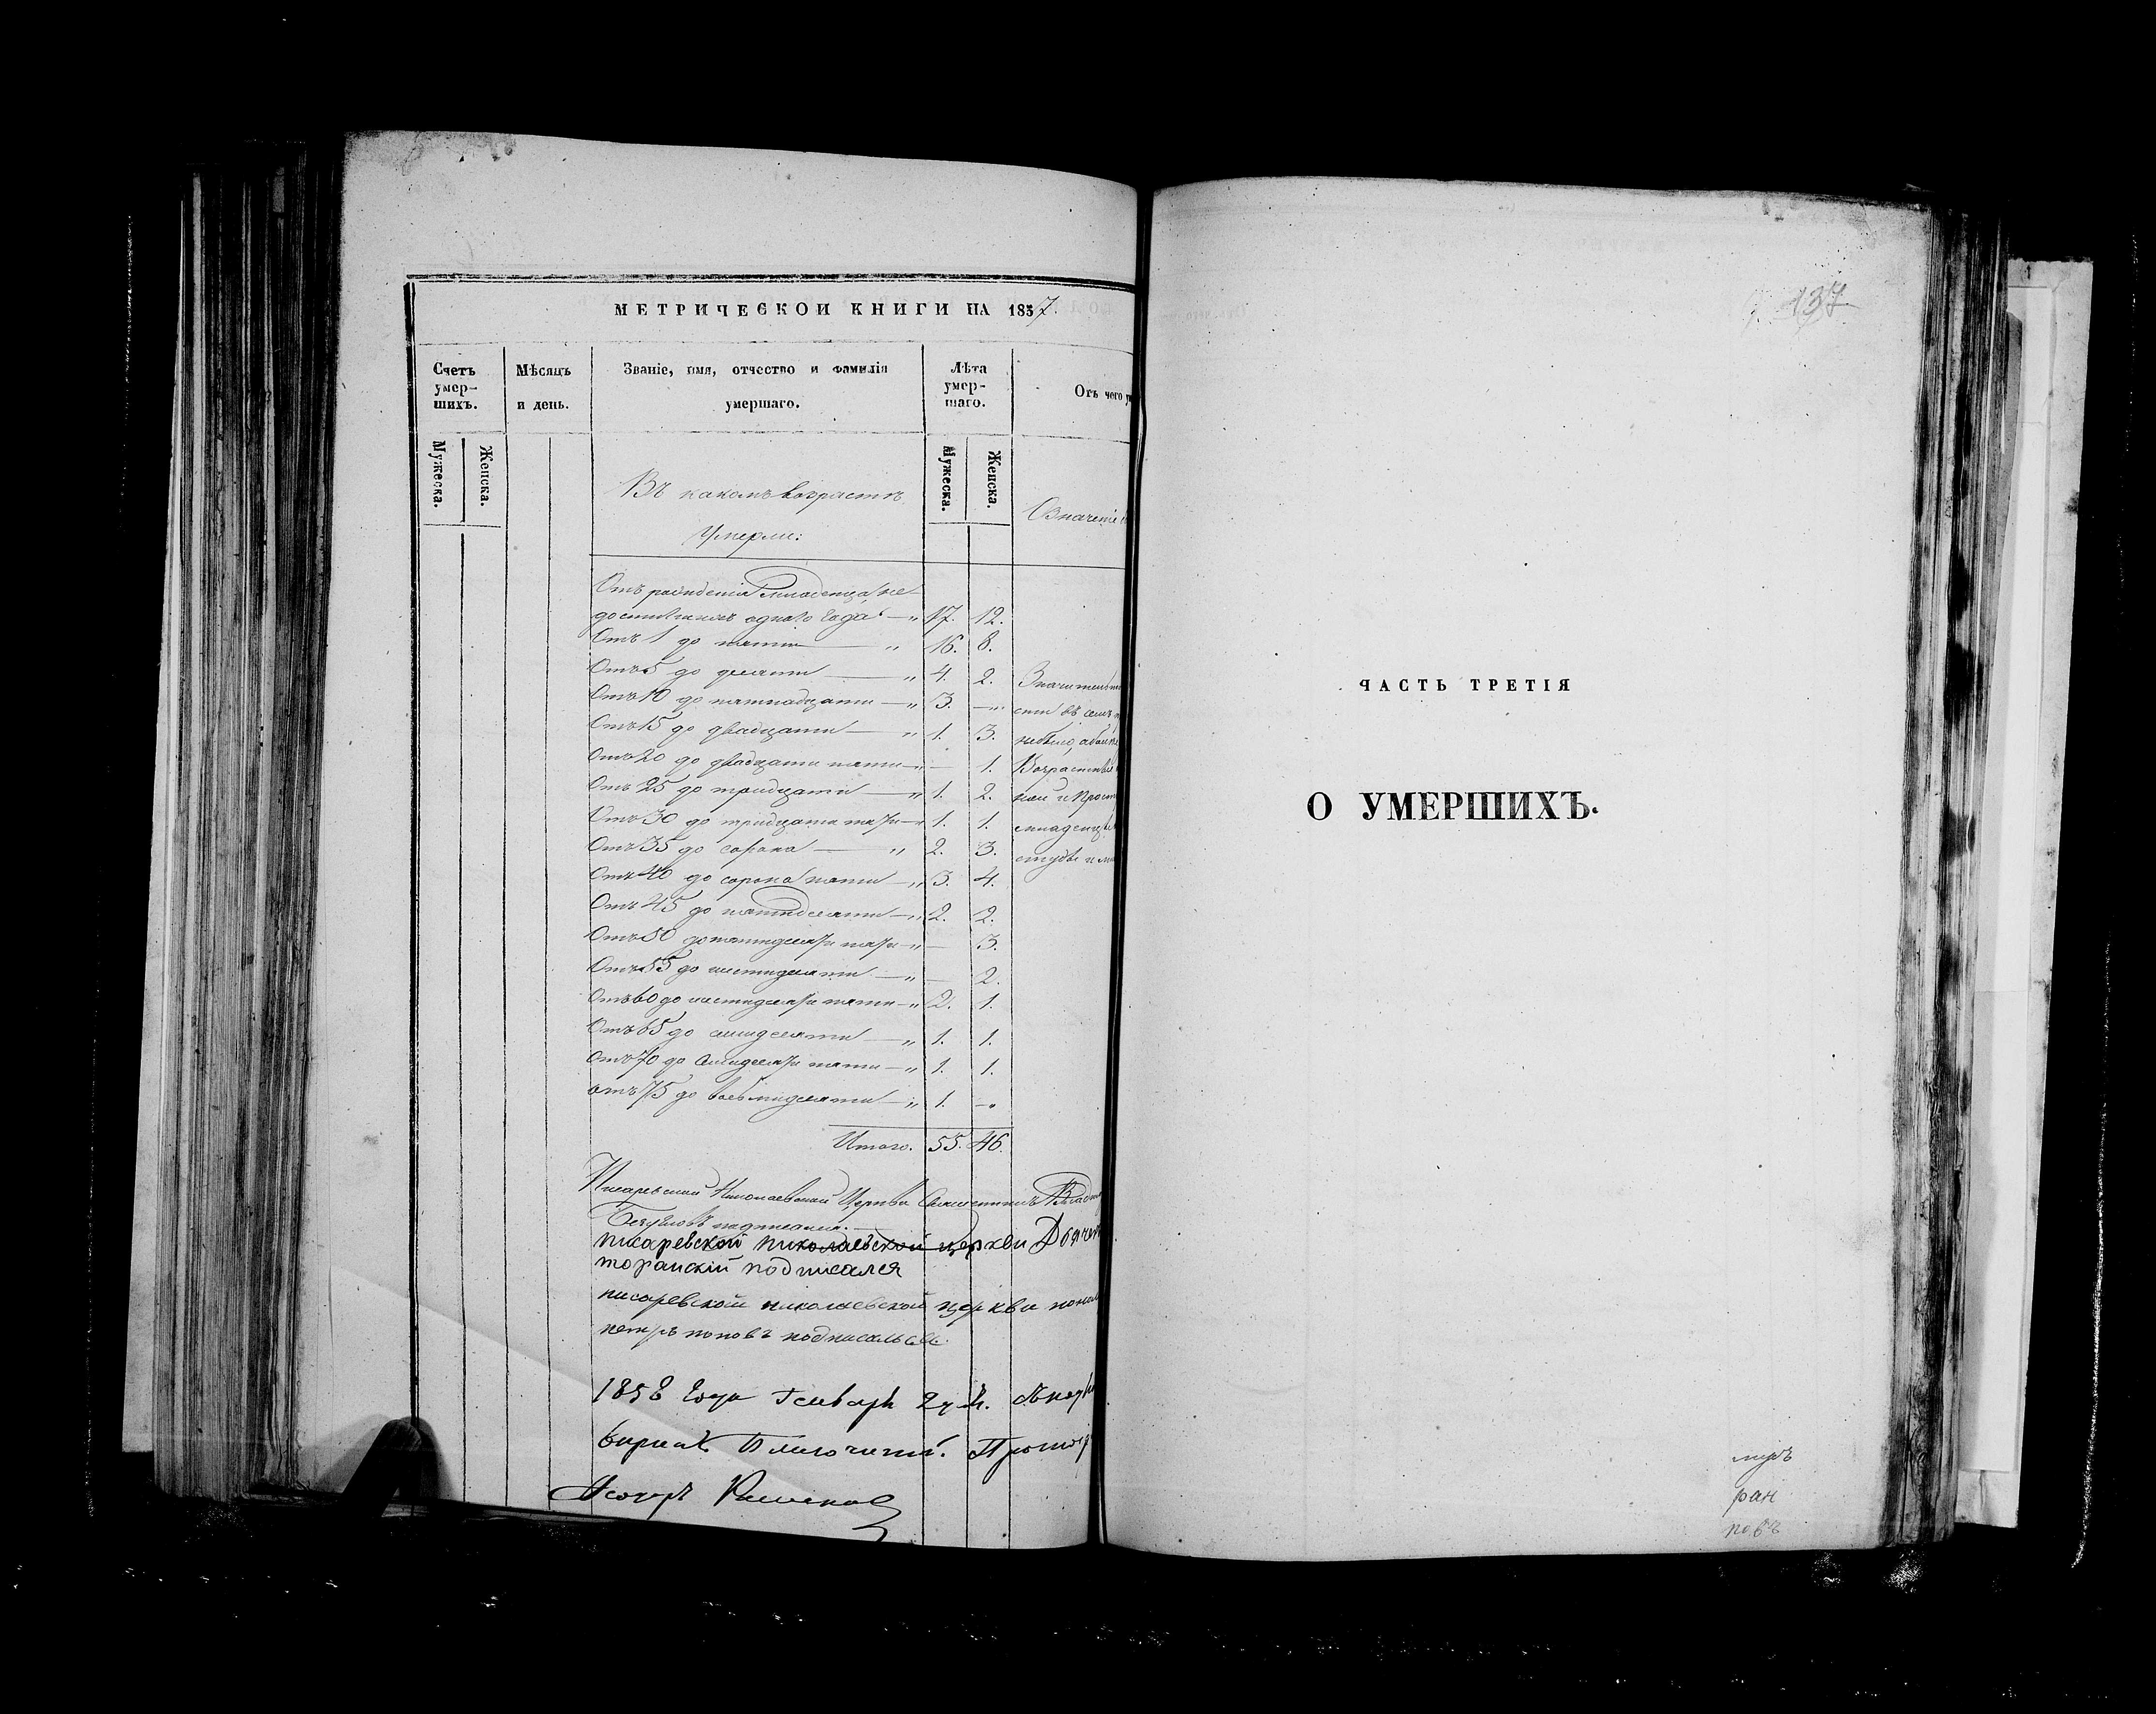 МЕТРИЧЕСКОЙ КНИГИ НА 1857.
Счетъ умер-шихъ.
Мѣсяцъ и день.
Званіе, имя, отчество и фамилія умершаго.
Лѣта умер-шаго.
Отъ чего
Мужеска.
Женска.
Мужеска.
Женска.
Въ какомъ возрастѣ
умерли:
Отъ рожденія младенца не
достигшихъ одного года — „ 17. 12.
Отъ 1 до пяти — „ 16. 8.
Отъ 5 до десяти — „ 4. 2.
Отъ 10 до пятнадцати — „ 3. —„
Отъ 15 до двадцати — „ 1. 3.
Отъ 20 до двадцати пяти — „ — 1.
Отъ 25 до тридцати — „ 1. 2.
Отъ 30 до тридцати пяти — „ 1. 1.
Отъ 35 до сорока — „ 2. 3.
Отъ 40 до сорока пяти — „ 3. 4.
Отъ 45 до пятидесяти — „ 2. 2.
Отъ 50 до пятидесяти пяти — „ — 3.
Отъ 55 до шестидесяти — „ — 2.
Отъ 60 до шестидесяти пяти — „ 2. 1.
Отъ 65 до семидесяти — „ 1. 1.
Отъ 70 до семидесяти пяти — „ 1. 1.
отъ 75 до восьмидесяти — „ 1. —„
Итого. 55. 46.
Писаревской Николаевской Церкви Священникъ
подписался.
писаревской николаевской церкви
подписался
писаревской николаевской церкви
петръ поповъ подписался
1858 года Генваря
137
ЧАСТЬ ТРЕТІЯ
О УМЕРШИХЪ.
ран